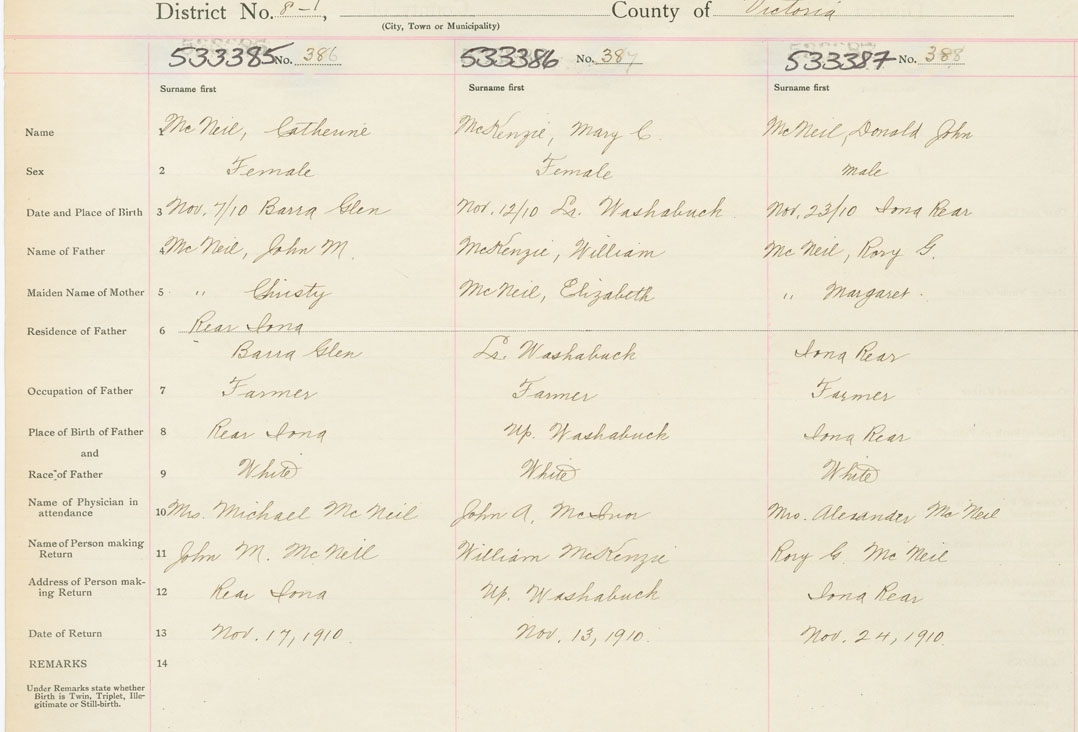 District No. 8-1, County of Victoria
(City, Town or Municipality)
533385 No. 386 533386 No. 387 533387 No. 388
Surname first Surname first Surname first
Name 1 McNeil, Catherine McKenzie, Mary C. McNeil, Donald John
Sex 2 Female Female male
Date and Place of Birth 3 Nov. 7/10 Barra Glen Nov. 12/10 Lr. Washabuck Nov. 23/10 Iona Rear
Name of Father 4 McNeil, John M. McKenzie, William McNeil, Rory G.
Maiden Name of Mother 5 " Christy McNeil, Elizabeth " Margaret
Residence of Father 6 Rear Iona
Barra Glen Lr. Washabuck Iona Rear
Occupation of Father 7 Farmer Farmer Farmer
Place of Birth of Father 8 Rear Iona Up. Washabuck Iona Rear
and
Race of Father 9 White White White
Name of Physician in
attendance 10 Mrs. Michael McNeil John A. McIvor Mrs. Alexander McNeil
Name of Person making
Return 11 John M. McNeil William McKenzie Rory G. McNeil
Address of Person mak-
ing Return 12 Rear Iona Up. Washabuck Iona Rear
Date of Return 13 Nov. 17, 1910. Nov. 13, 1910. Nov. 24, 1910
REMARKS 14
Under Remarks state whether
Birth is Twin, Triplet, Ille-
gitimate or Still-birth.